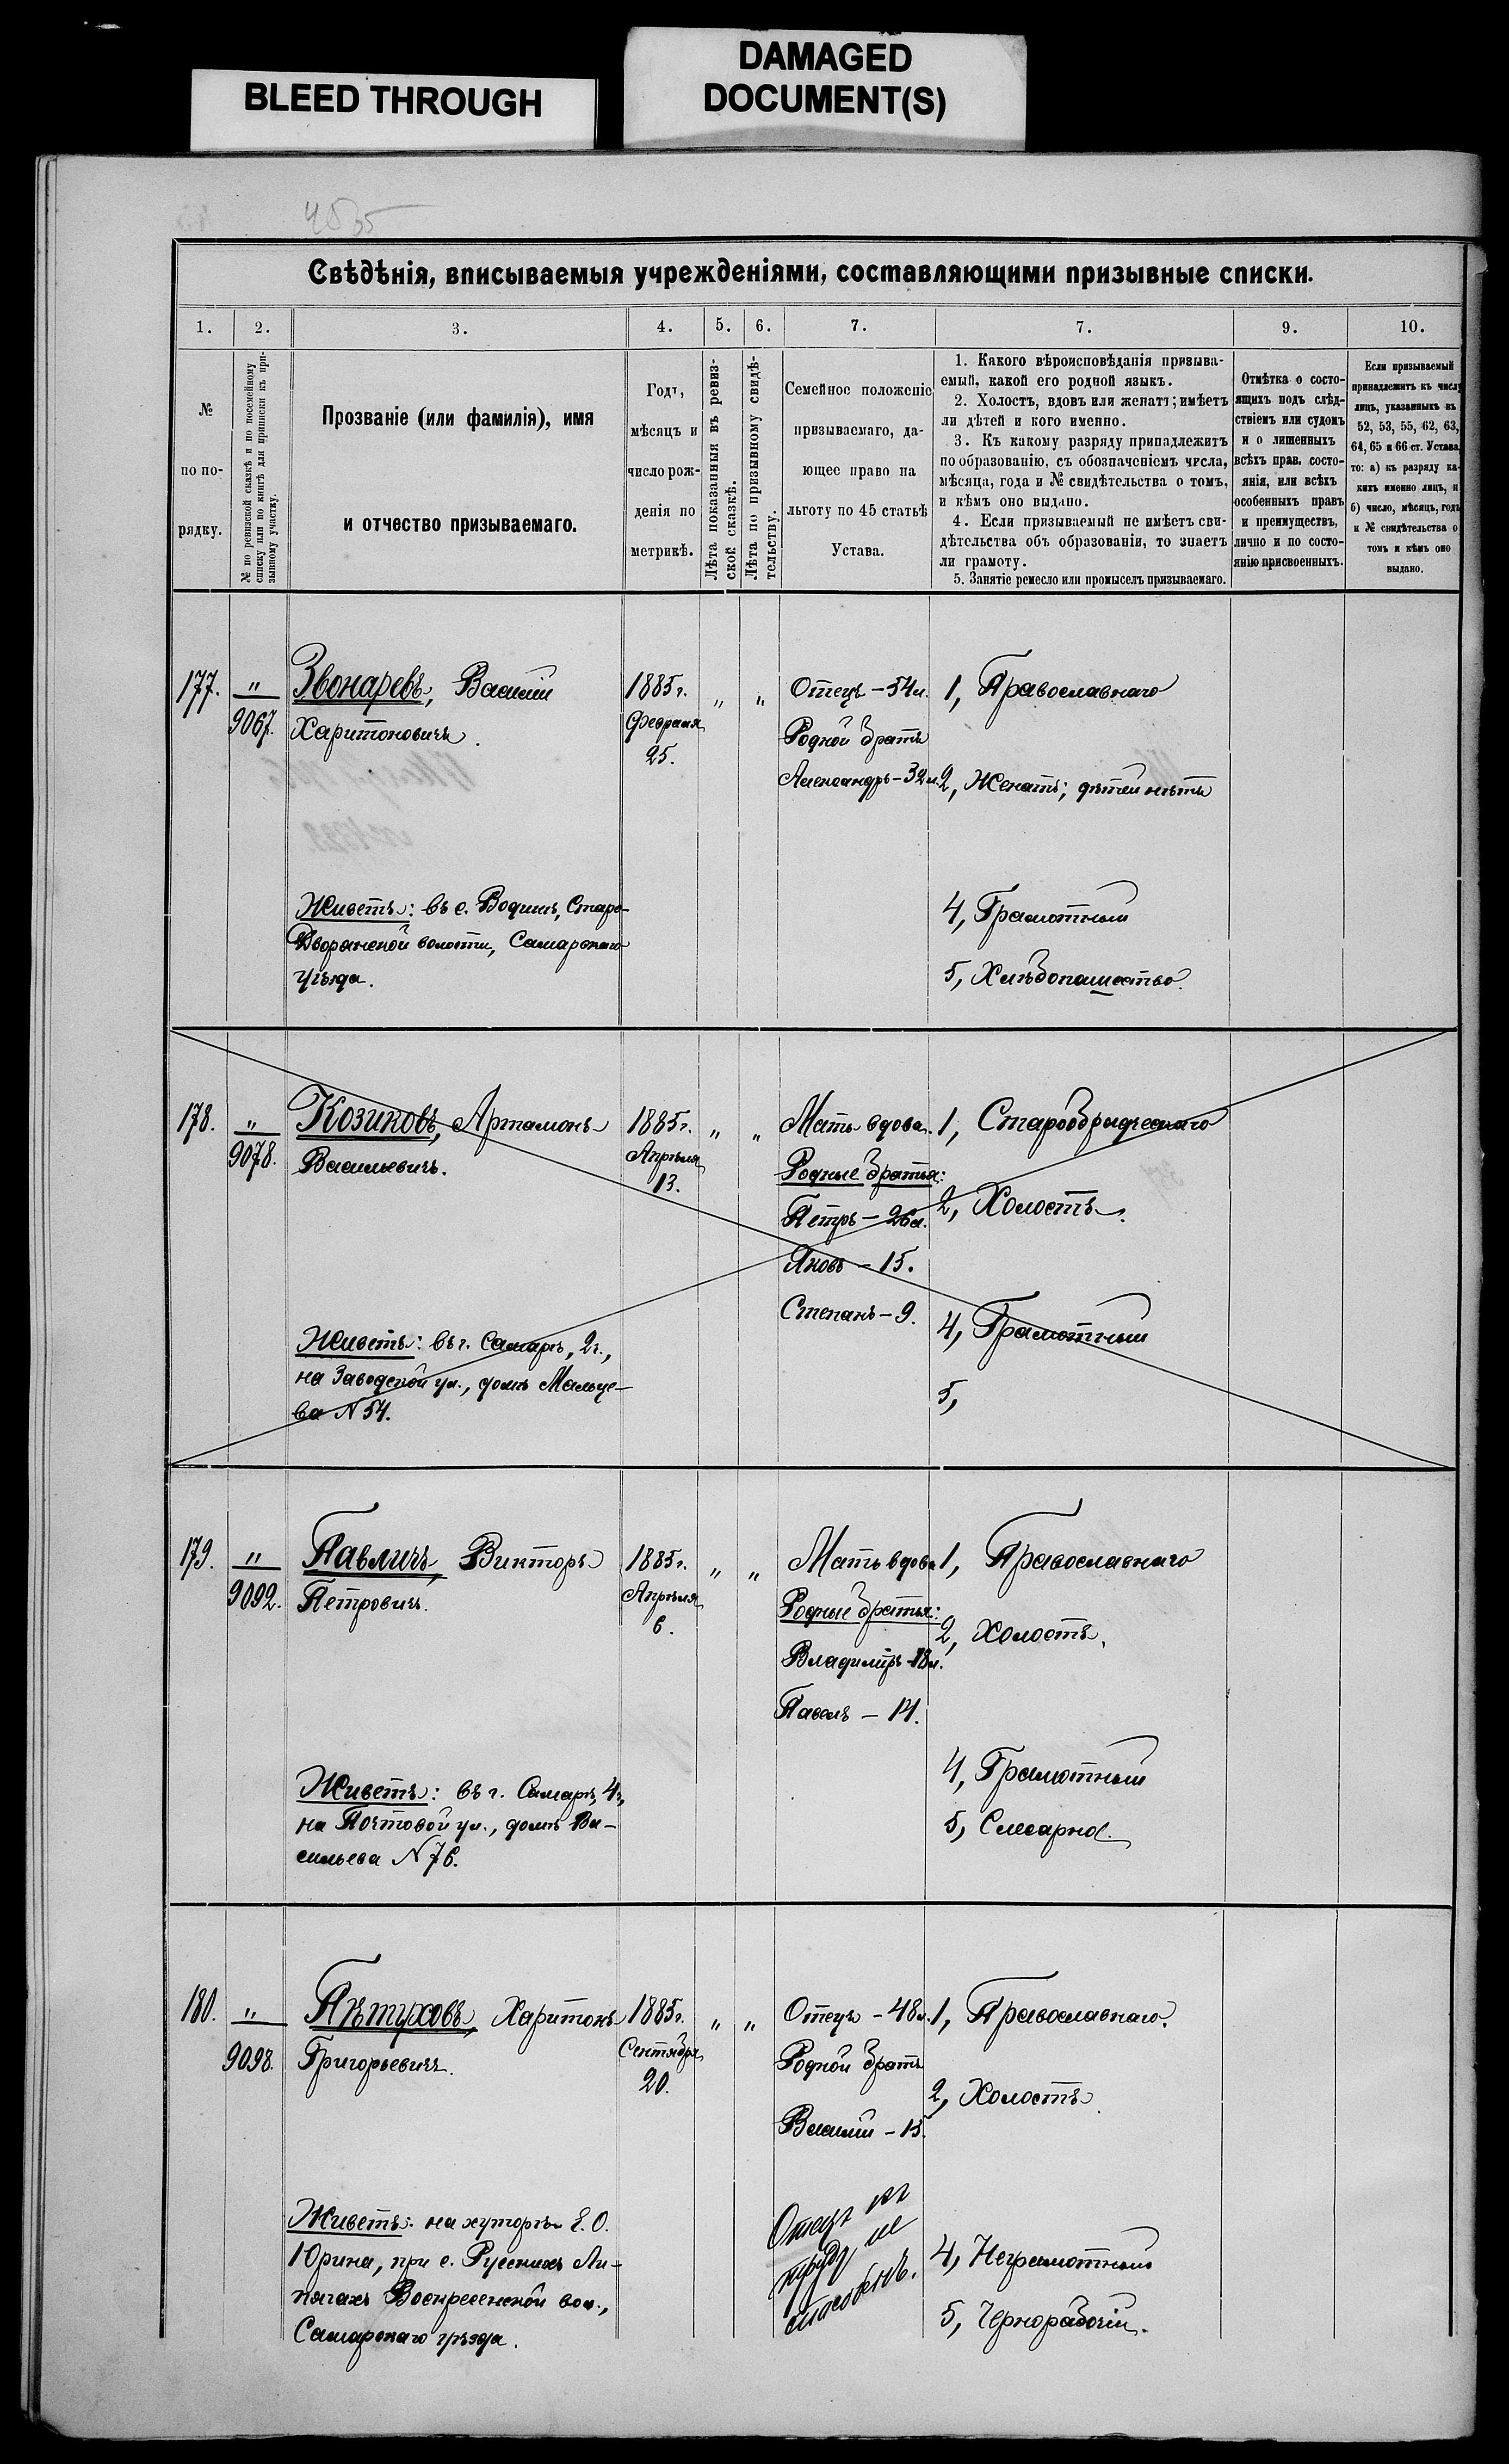 BLEED THROUGH
DAMAGED
DOCUMENT(S)
Свѣдѣнія, вписываемыя учрежденіями, составляющими призывные списки.
1.
2.
3.
4.
5.
6.
7.
7.
9.
10.
№
по по-
рядку.
№ по ревизской сказкѣ и по посемейному
списку или по книгѣ для приписки къ при-
зывному участку.
Прозваніе (или фамилія), имя
и отчество призываемаго.
Годъ,
мѣсяцъ и
число рож-
денія по
метрикѣ.
Лѣта показанныя въ ревиз-
ской сказкѣ.
Лѣта по призывному свидѣ-
тельству.
Семейное положеніе
призываемаго, да-
ющее право на
льготу по 45 статьѣ
Устава.
1. Какого вѣроисповѣданія призыва-
емый, какой его родной языкъ.
2. Холостъ, вдовъ или женатъ; имѣетъ
ли дѣтей и кого именно.
3. Къ какому разряду принадлежитъ
по образованію, съ обозначеніемъ числа,
мѣсяца, года и № свидѣтельства о томъ,
и кѣмъ оно выдано.
4. Если призываемый не имѣетъ сви-
дѣтельства объ образованіи, то знаетъ
ли грамоту.
5. Занятіе ремесло или промыселъ призываемаго.
Отмѣтка о состо-
ящихъ подъ слѣд-
ствіемъ или судомъ
и о лишенныхъ
всѣхъ прав. состо-
янія, или всѣхъ
особенныхъ правъ
и преимуществъ,
лично и по состо-
янію присвоенныхъ.
Если призываемый
принадлежитъ къ числу
лицъ, указанныхъ въ
52, 53, 55, 62, 63,
64, 65 и 66 ст. Устава,
то: а) къ разряду ка-
кихъ именно лицъ, и
б) число, мѣсяцъ, годъ
и № свидѣтельства о
томъ и кѣмъ оно
выдано.
177.
"
9067.
Звонаревъ, Василій
Харитоновичъ.
Живетъ: въ с. Водинѣ, Старо-
Дворянской волости, Самарскаго
уѣзда.
1885 г.
Февраля
25.
"
"
Отецъ - 54 л.
Родной братъ
Александръ - 32 л.
1, Православнаго
2, Женатъ; дѣтей нѣтъ
4, Грамотный
5, Хлѣбопашество.
178.
"
9078.
Козиковъ, Артамонъ
Васильевичъ.
Живетъ: въ г. Самарѣ, 2 ч.,
на Заводской ул., домъ Мальце-
ва N 54.
1885 г.
Апрѣля
13.
"
"
Мать вдова.
Родные братья:
Петръ - 26 л.
Яковъ - 15.
Степанъ - 9.
1, Старообрядческаго
2, Холостъ.
4, Грамотный
5,
179.
"
9092.
Павличъ, Викторъ
Петровичъ.
Живетъ: въ г. Самарѣ, 4 ч,
на Почтовой ул., домъ Ва-
сильева N 76.
1885 г.
Апрѣля
6.
"
"
Мать вдова
Родные братья:
Владиміръ - 18 л.
Павелъ - 14.
1, Православнаго
2, Холостъ.
4, Грамотный
5, Слесарно.
180.
"
9098.
Пѣтуховъ, Харитонъ
Григорьевичъ.
Живетъ: на хуторѣ Е. О.
Юрина, при с. Русскихъ Ли-
пягахъ Воскресенской вол.,
Самарскаго уѣзда.
1885 г.
Сентября
20.
"
"
Отецъ - 48 л.
Родной братъ
Василій - 15.
Отецъ къ
труду не
способенъ.
1, Православнаго.
2, Холостъ.
4, Неграмотный
5, Чернорабочій.